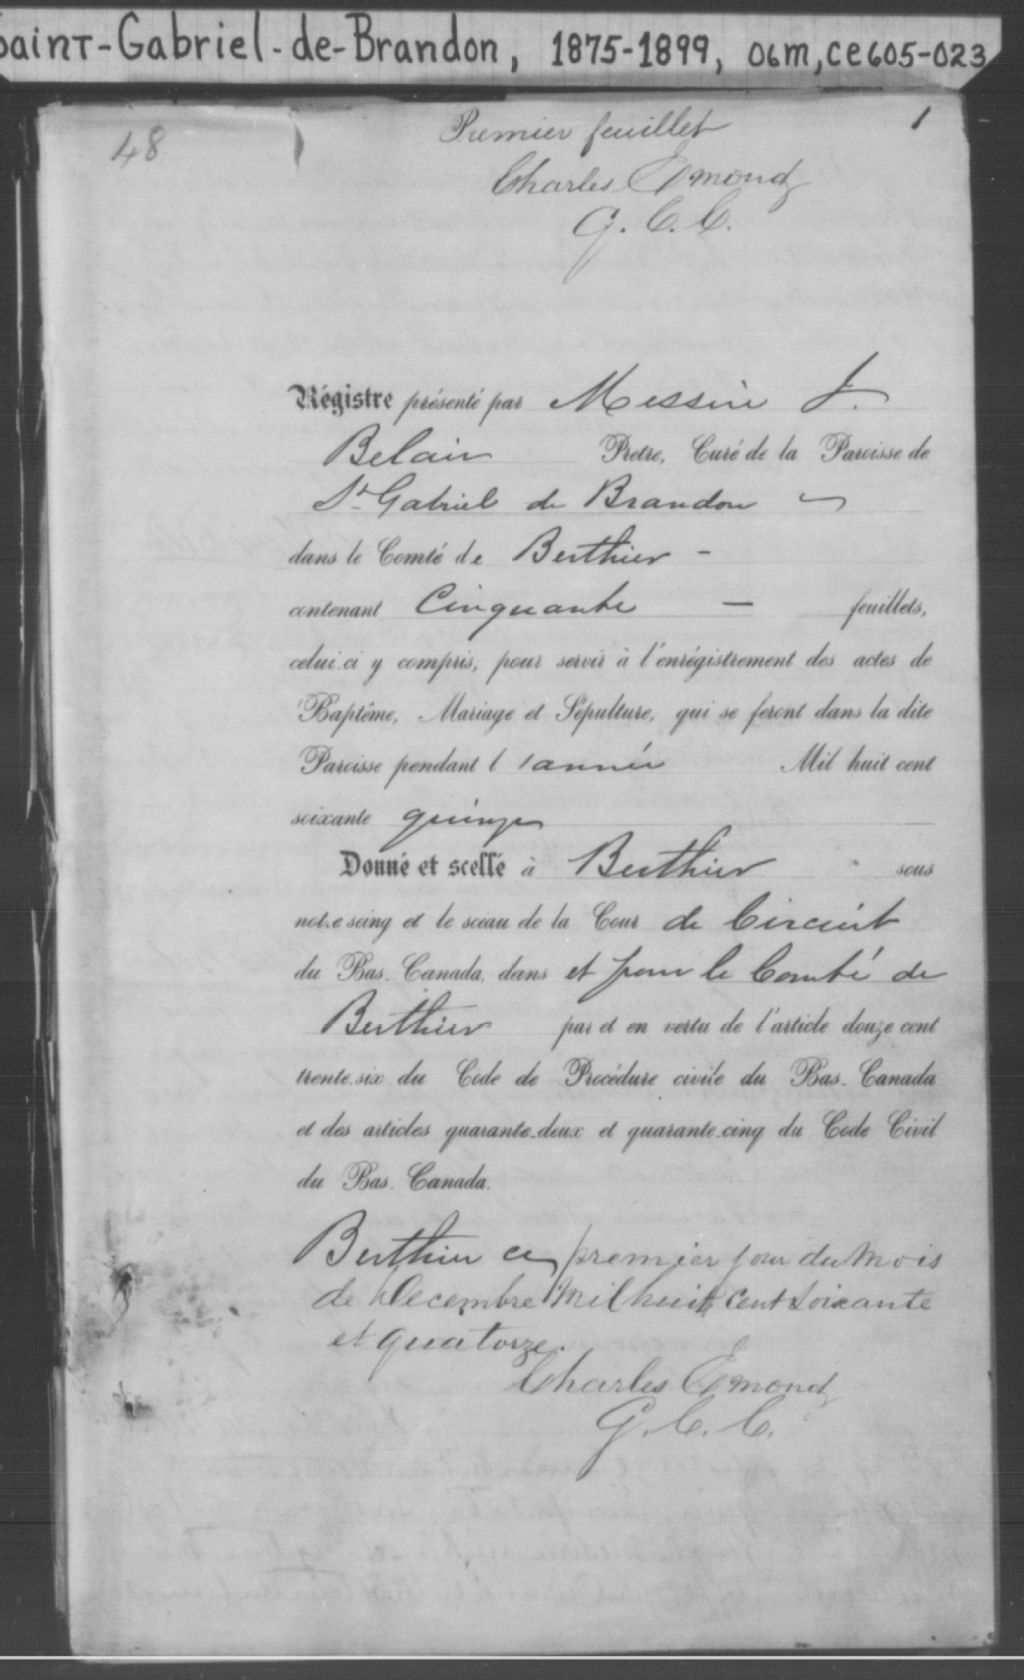 Saint-Gabriel-de-Brandon, 1875-1899, 06m, ce605-023
48
1
Premier feuillet
Charles Emond
G. C. C.
Régistre présenté par Messire J.
Belair Prêtre, Curé de la Paroisse de
St Gabriel de Brandon
dans le Comté de Berthier -
contenant Cinquante — feuillets,
celui ci y compris, pour servir à l'enrégistrement des actes de
Baptême, Mariage et Sépulture, qui se feront dans la dite
Paroisse pendant l'année Mil huit cent
soixante quinze
Donné et scellé à Berthier sous
notre seing et le sceau de la Cour de Circuit
du Bas-Canada, dans et pour le Comté de
Berthier par et en vertu de l'article douze cent
trente-six du Code de Procédure civile du Bas-Canada
et des articles quarante-deux et quarante-cinq du Code Civil
du Bas-Canada.
Berthier ce premier jour du Mois
de Decembre Mil huit cent soixante
et quatorze.
Charles Emond
G. C. C.